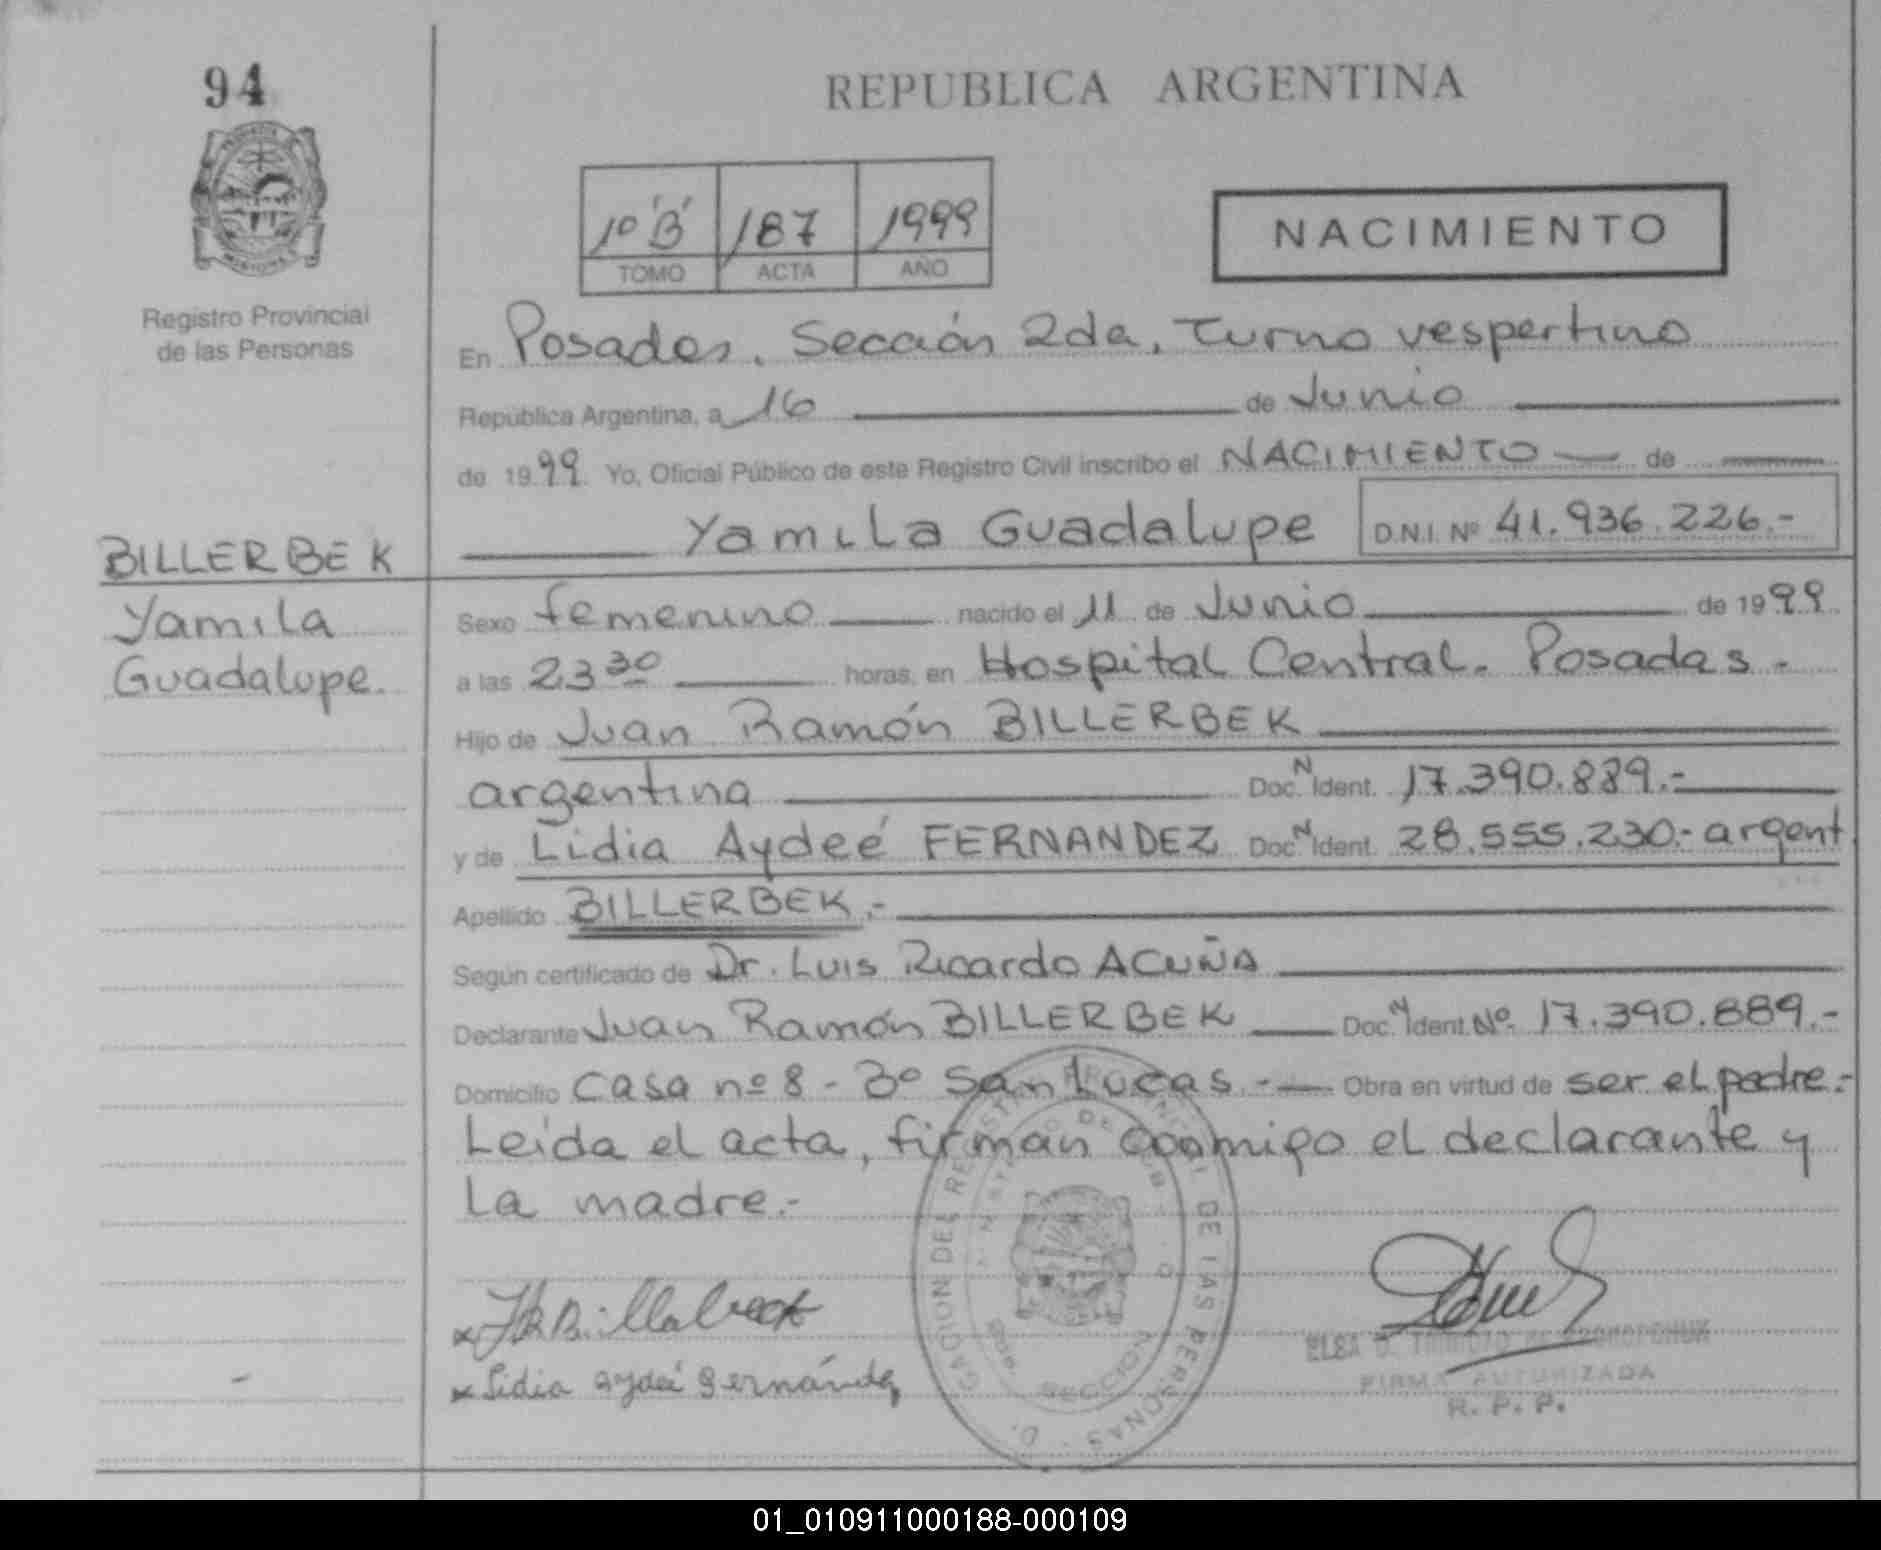 94
REPUBLICA ARGENTINA
1º "B" 187 1999
TOMO ACTA AÑO
NACIMIENTO
Registro Provincial
de las Personas
En Posadas, Sección 2da, Turno vespertino
República Argentina, a 16 de Junio
de 1999 Yo, Oficial Público de este Registro Civil inscribo el NACIMIENTO de
Yamila Guadalupe D.N.I. Nº 41.936.226.-
BILLERBEK
Yamila
Guadalupe.
Sexo femenino nacido el 11 de Junio de 1999
a las 23 30 horas, en Hospital Central. Posadas.-
Hijo de Juan Ramón BILLERBEK
argentina Doc. N Ident. 17.390.889.-
y de Lidia Aydeé FERNANDEZ Doc. N Ident. 28.555.230.- argent
Apellido BILLERBEK.-
Según certificado de Dr. Luis Ricardo ACUÑA
Declarante Juan Ramón BILLERBEK Doc. N Ident. Nº. 17.390.889.-
Domicilio Casa nº 8 - Bº San Lucas.- Obra en virtud de ser el padre.-
Leída el acta, firman conmigo el declarante y
la madre.-
Lidia Aydeé Fernández
DEL REGISTRO PROVINCIAL DE LAS PERSONAS
SECCION
ELSA
FIRMA AUTORIZADA
R. P. P.
01_010911000188-000109